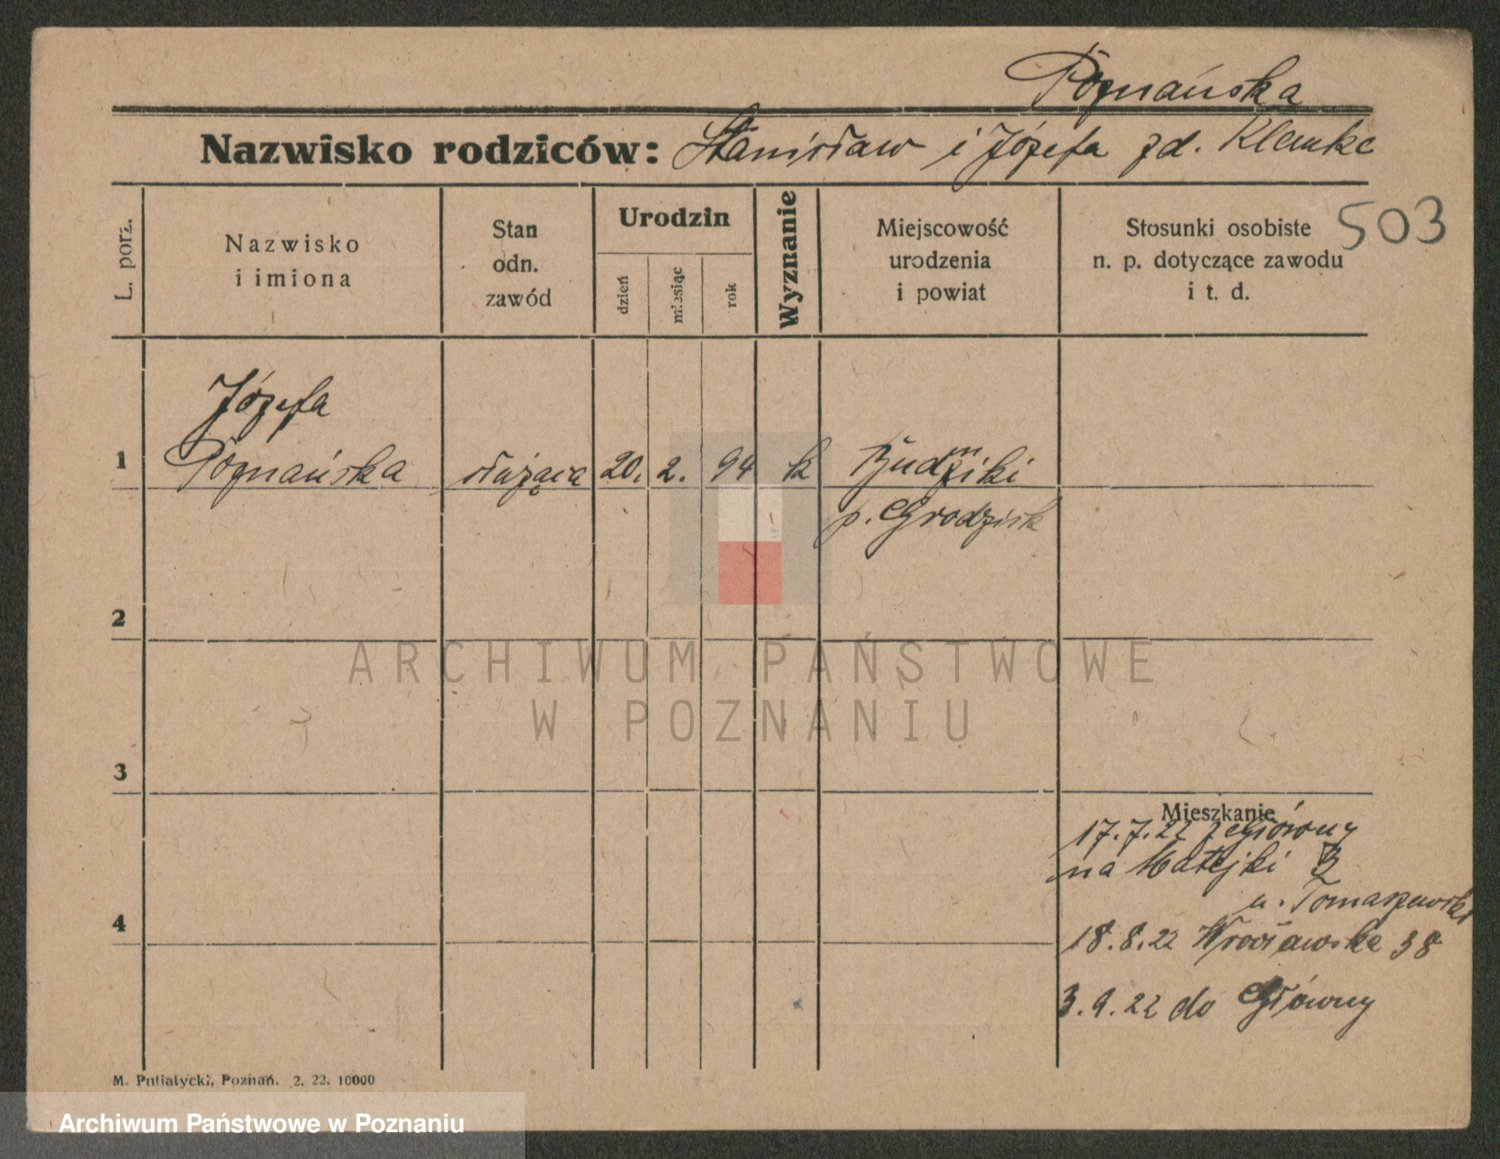 Poznańska
Nazwisko rodziców: Stanisław i Józefa zd. Klemke
503
L. porz.
Nazwisko
i imiona
Stan
odn.
zawód
Urodzin
dzień
miesiąc
rok
Wyznanie
Miejscowość
urodzenia
i powiat
Stosunki osobiste
n. p. dotyczące zawodu
i t. d.
Józefa
1 Poznańska służąca 20. 2. 94 k
p. Grodzisk
2
3
4
ARCHIWUM PAŃSTWOWE
W POZNANIU
Mieszkanie
17.7.22 z Główny
na Matejki
u. Tomaszewski
18.8.22 Wrocławska 38
3.9.22 do Główny
M. Putiatycki, Poznań. 2. 22. 10000
Archiwum Państwowe w Poznaniu